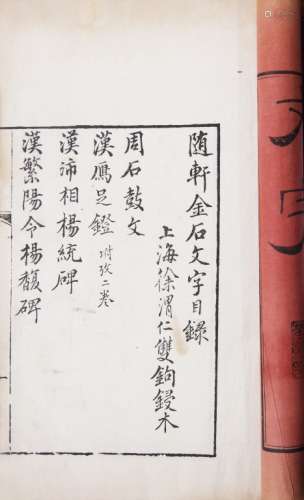 随軒金石文字目錄
上海徐渭仁雙鉤鋟木
周石鼓文
漢鴈足鐙 附攷二卷
漢沛相楊統碑
漢繁陽令楊馥碑